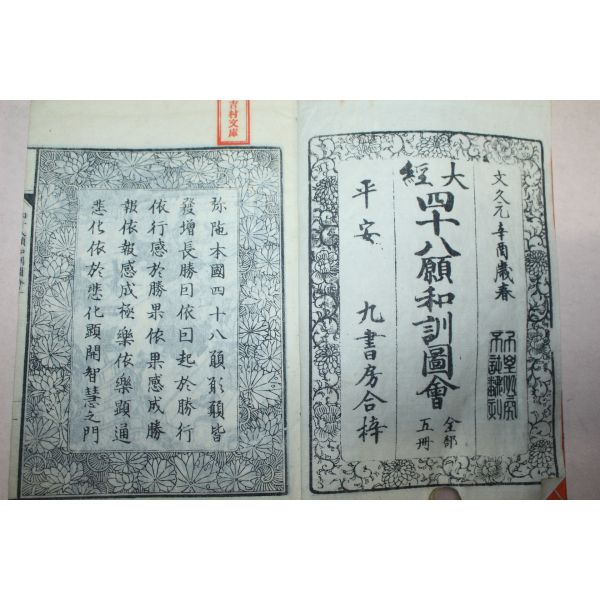 文久元辛酉歳春
大經
四十八願和訓圖會
全部五冊
平安 九書房合梓
吉村文庫
弥陁本國四十八願願願皆
發增長勝因依因起於勝行
依行感於勝果依果感成勝
報依報感成極樂依樂顕通
悲化依於悲化顕開智慧之門